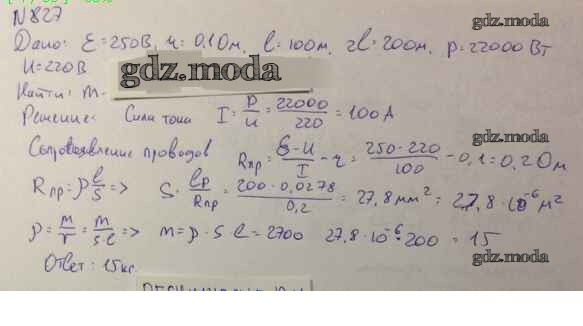 N 827
gdz.moda
Дано: Ɛ=250В, r=0,1Ом, l=100м, 2l=200м, P=22000 Вт
gdz.moda
U=220В
gdz.moda
Найти: m-
gdz.moda
Решение: Сила тока I = P/U = 22000/220 = 100А
gdz.moda
Сопротивление проводов Rпр = (Ɛ-U)/I - r = (250-220)/100 - 0,1 = 0,2 Ом
Rпр = ρ l/S => S = lρ/Rпр = 200·0,0278/0,2 = 27,8 мм² = 27,8·10⁻⁶ м²
ρ = m/V = m/S·l => m = ρ·S·l = 2700 27,8·10⁻⁶·200 = 15
gdz.moda
Ответ: 15кг.